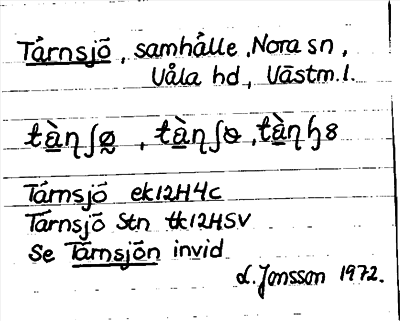 Tärnsjö, samhälle, Nora sn,
Våla hd, Västm. l.
tà̱ɳʃø̰, tà̱ɳʃɵ, tà̱ɳɧ8
Tärnsjö ek12H4c
Tärnsjö Stn tk12H5V
Se Tärnsjön invid
L. Jonsson 1972.